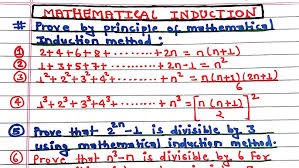 MATHEMATICAL INDUCTION
# Prove by principle of mathematical
Induction method:
① 2+4+6+8+........+2n = n(n+1)
② 1+3+5+7+........+2n-1 = n²
③ 1²+2²+3²+4²+........+n² = n(n+1)(2n+1)/6
④ 1³+2³+3³+4³+........+n³ = [n(n+1)/2]²
⑤ Prove that 2²ⁿ-1 is divisible by 3
using mathematical induction method.
⑥ Prove that n³-n is divisible by 6 for